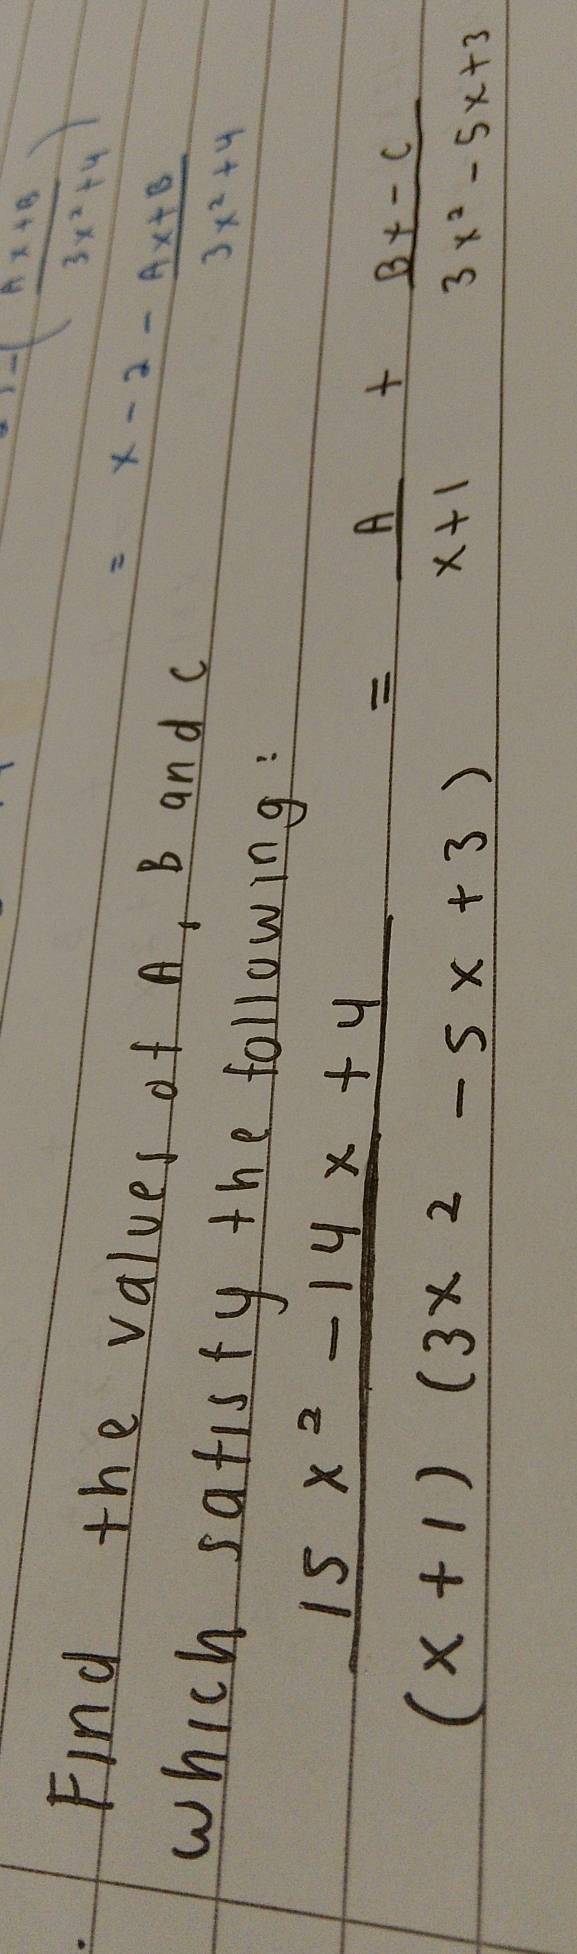 Ax+B
3x²+4
= x-2- Ax+B
3x²+4
Find the values of A, B and C
which satisfy the following:
15x² -14x +4 = A + Bx-C
(x+1) (3x2 -5x+3) x+1 3x²-5x+3